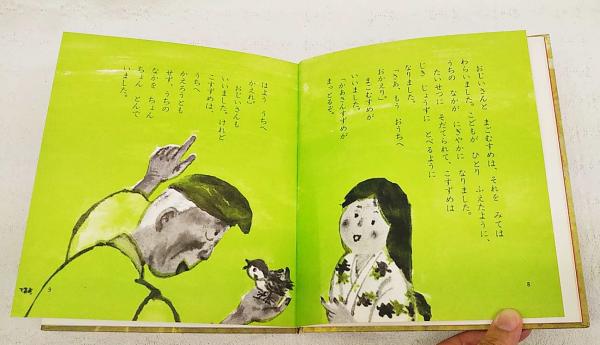 おじいさんと まごむすめは、それを みては
わらいました。こどもが ひとり ふえたように、
うちの なかが にぎやかに なりました。
たいせつに そだてられて、こすずめは
じき じょうずに とべるように
なりました。
「さあ、もう おうちへ
おかえり」
まごむすめが
いいました。
「かあさんすずめが
まっとるぞ。
8
はよう うちへ
かえれ」
おじいさんも
いいました。けれど
こすずめは、
うちへ
かえろうとも
せず、うちの
なかを ちょん
ちょん とんで
いました。
9